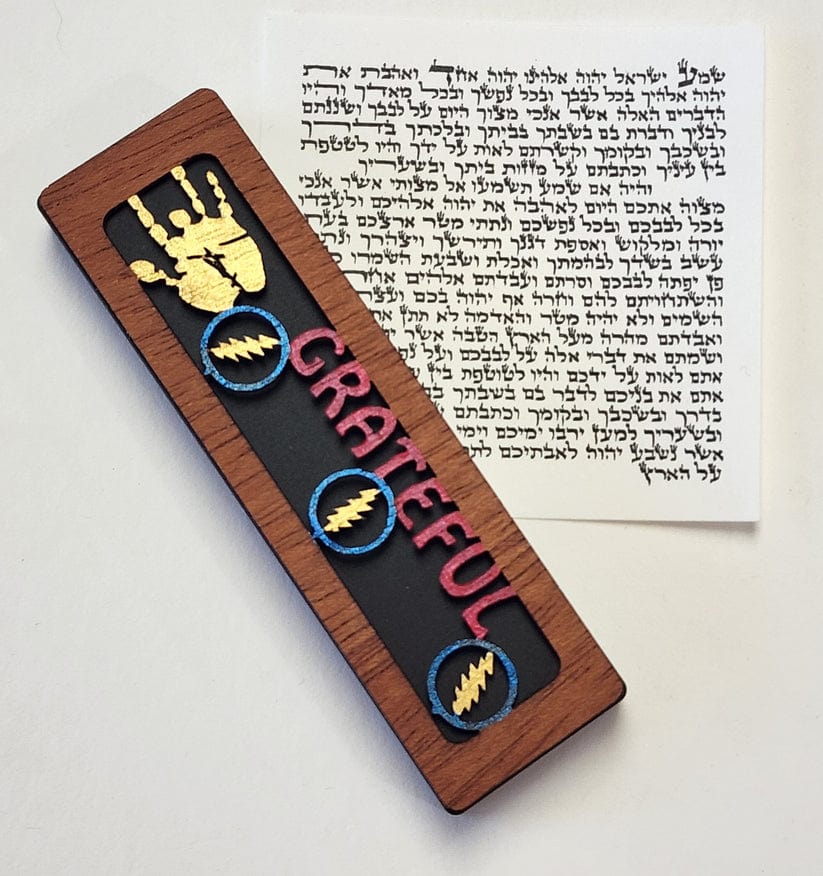 GRATEFUL
שמע ישראל יהוה אלהינו יהוה אחד ואהבת את
יהוה אלהיך בכל לבבך ובכל נפשך ובכל מאדך והיו
הדברים האלה אשר אנכי מצוך היום על לבבך ושננתם
לבניך ודברת בם בשבתך בביתך ובלכתך בדרך
ובשכבך ובקומך וקשרתם לאות על ידך והיו לטטפת
בין עיניך וכתבתם על מזזות ביתך ובשעריך
והיה אם שמע תשמעו אל מצותי אשר אנכי
מצוה אתכם היום לאהבה את יהוה אלהיכם ולעבדו
בכל לבבכם ובכל נפשכם ונתתי מטר ארצכם
יורה ומלקוש ואספת דגנך ותירשך ויצהרך
עשב בשדך לבהמתך ואכלת ושבעת השמרו
פן יפתה לבבכם וסרתם ועבדתם אלהים
והשתחויתם להם וחרה אף יהוה בכם ועצר
השמים ולא יהיה מטר והאדמה לא תתן את
ואבדתם מהרה מעל הארץ הטבה אשר
ושמתם את דברי אלה על לבבכם ועל
אתם לאות על ידכם והיו לטוטפת בין
אתם את בניכם לדבר בם בשבתך
בדרך ובשכבך ובקומך וכתבתם
ובשעריך למען ירבו ימיכם וימי
אשר נשבע יהוה לאבתיכם
על הארץ